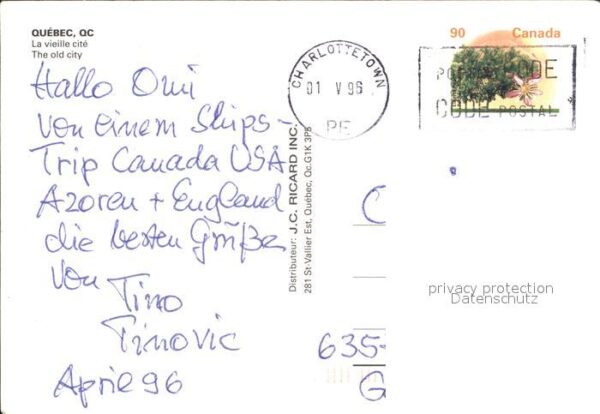 QUÉBEC, QC
La vieille cité
The old city
90 Canada
CHARLOTTETOWN
01 V 96
PE
POSTAL CODE
CODE POSTAL
Hallo Omi
von einem Ships-
Trip Canada USA
Azoren + England
die besten Grüße
von Tino
Tinovic
April 96
Distributeur: J.C. RICARD INC.
281 St-Vallier Est, Québec, Qc.G1K 3P5
C
635-
G
privacy protection
Datenschutz